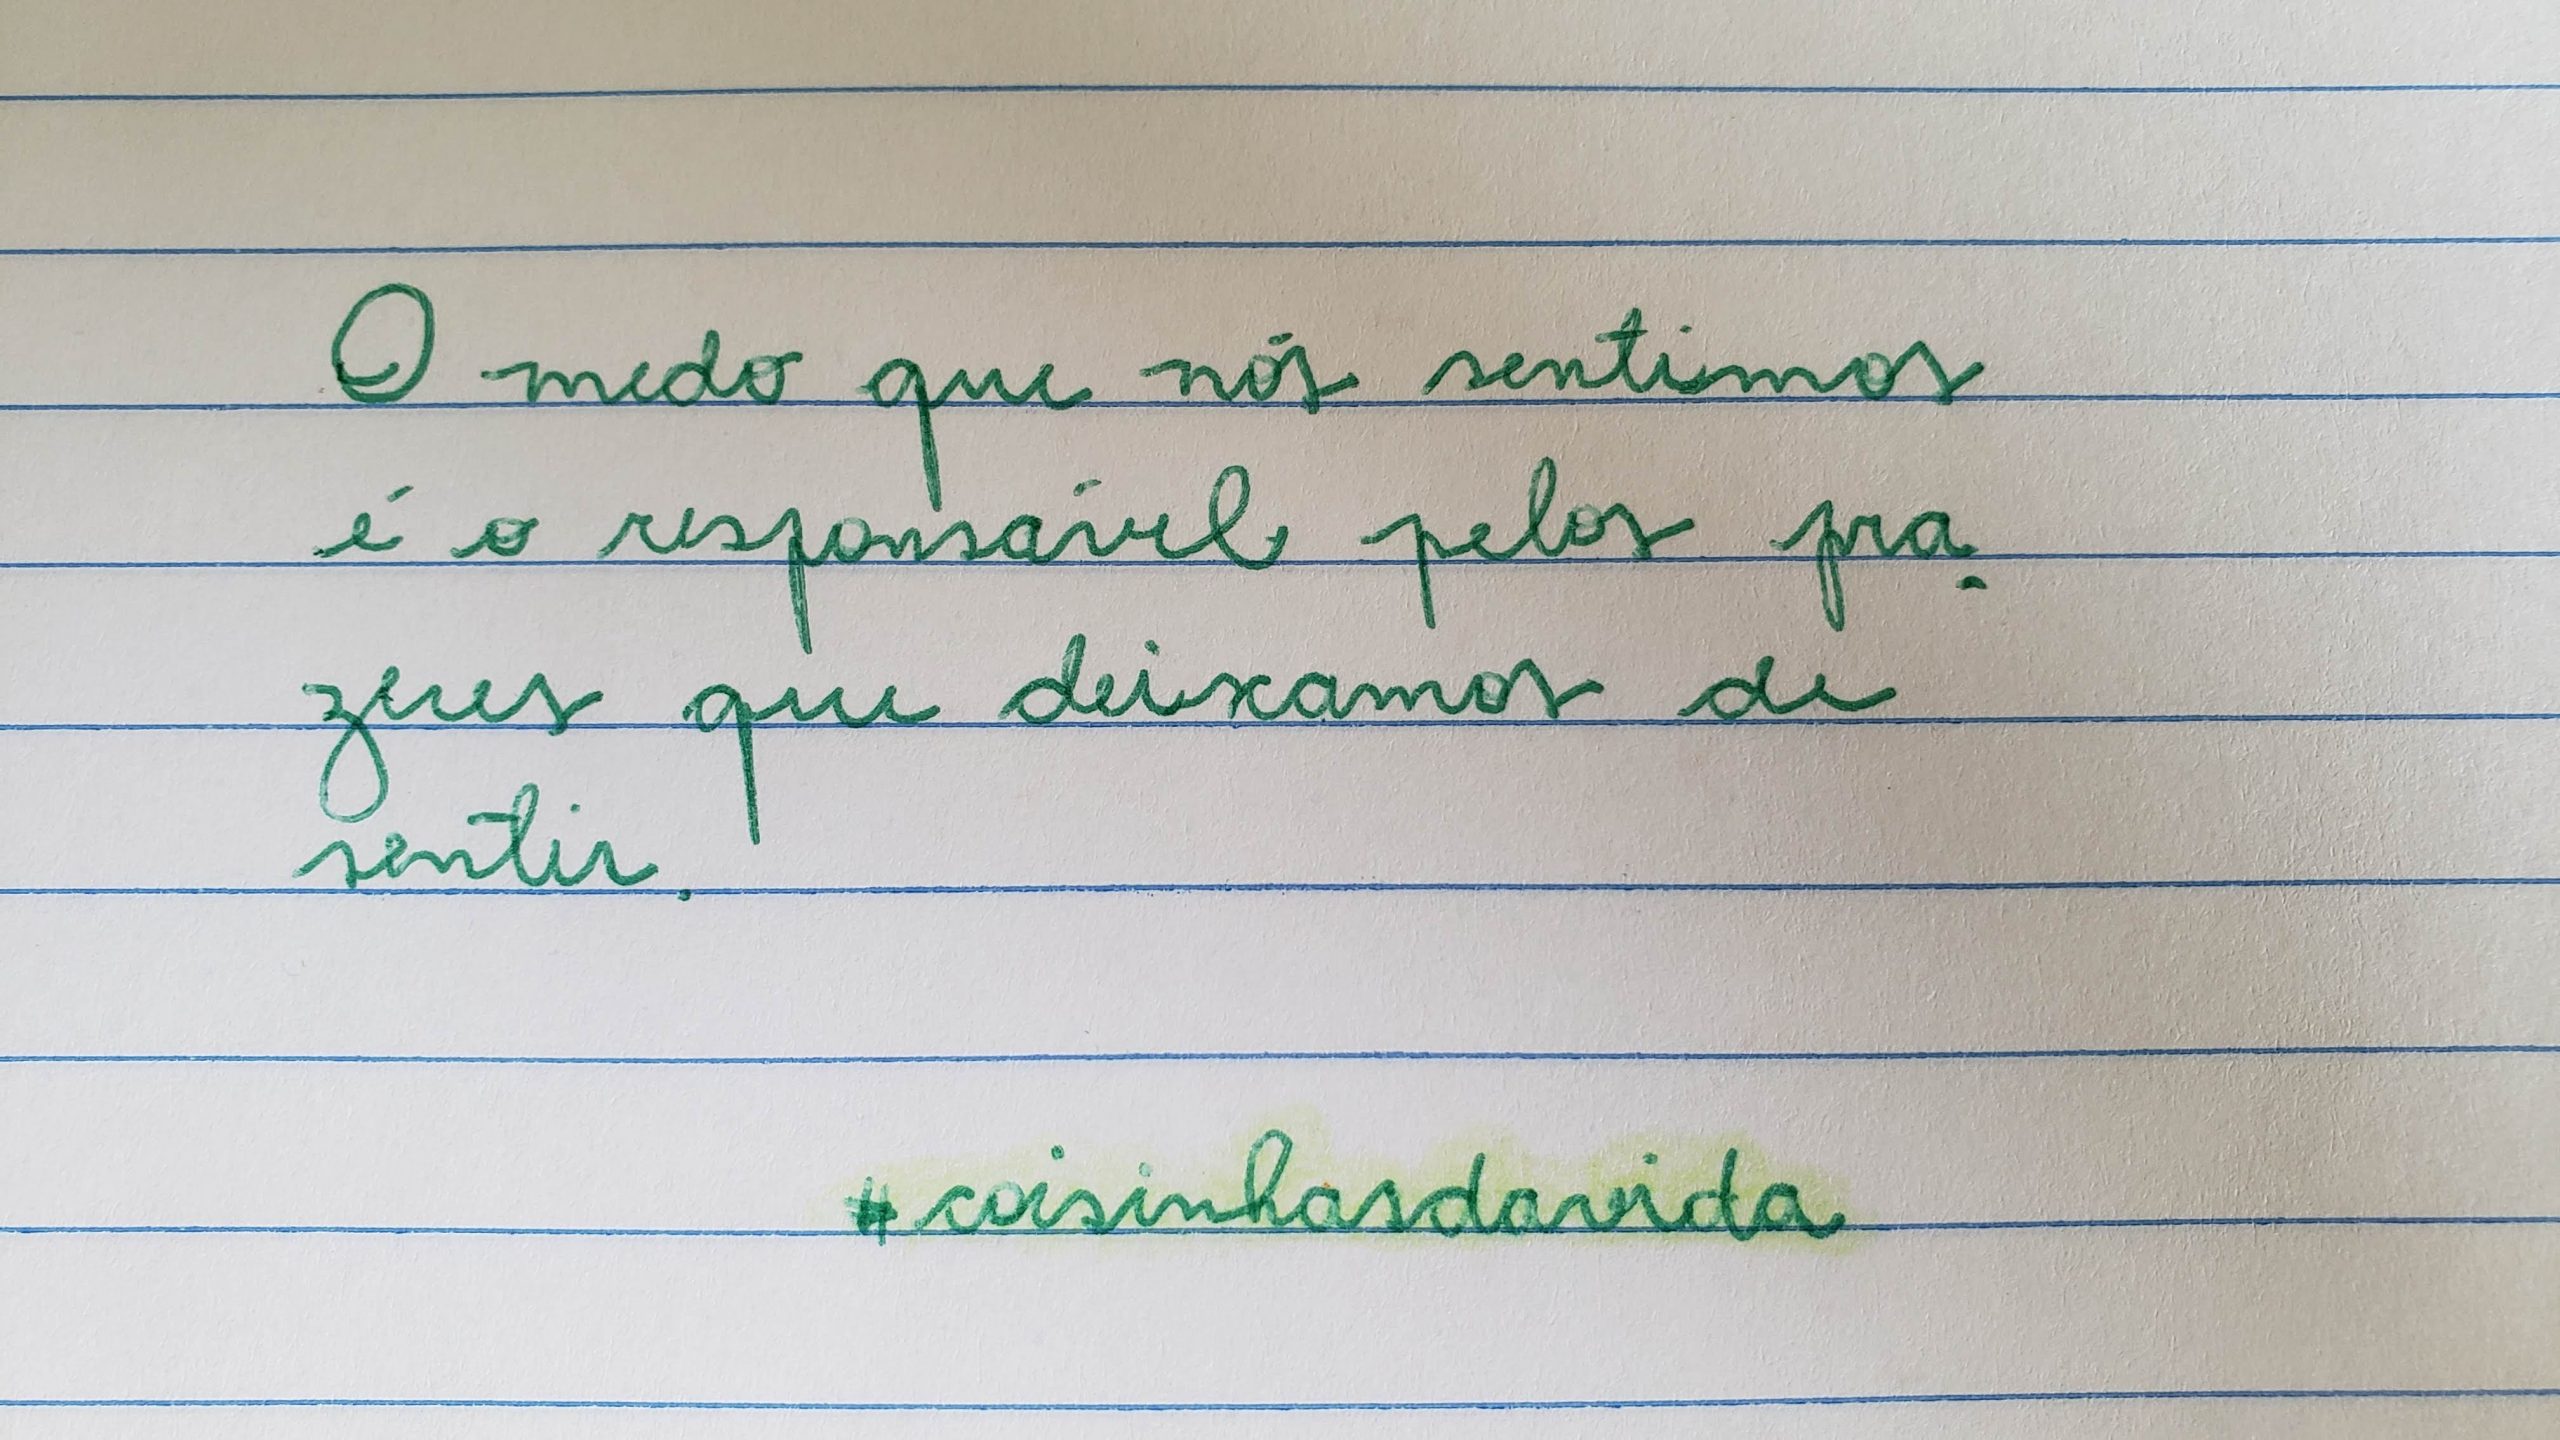 O medo que nós sentimos
é o responsável pelos pra-
zeres que deixamos de
sentir.
#coisinhasdavida